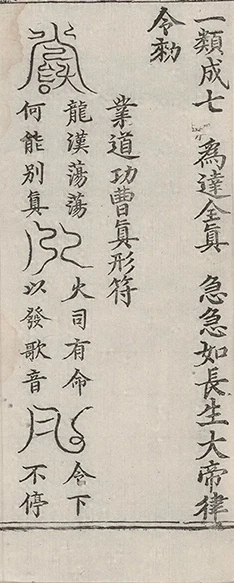 一類成七 為達全眞 急急如長生大帝律
令勑
業道功曹眞形符
龍漢蕩蕩 火司有命 令下
何能別眞 以發歌音 不停